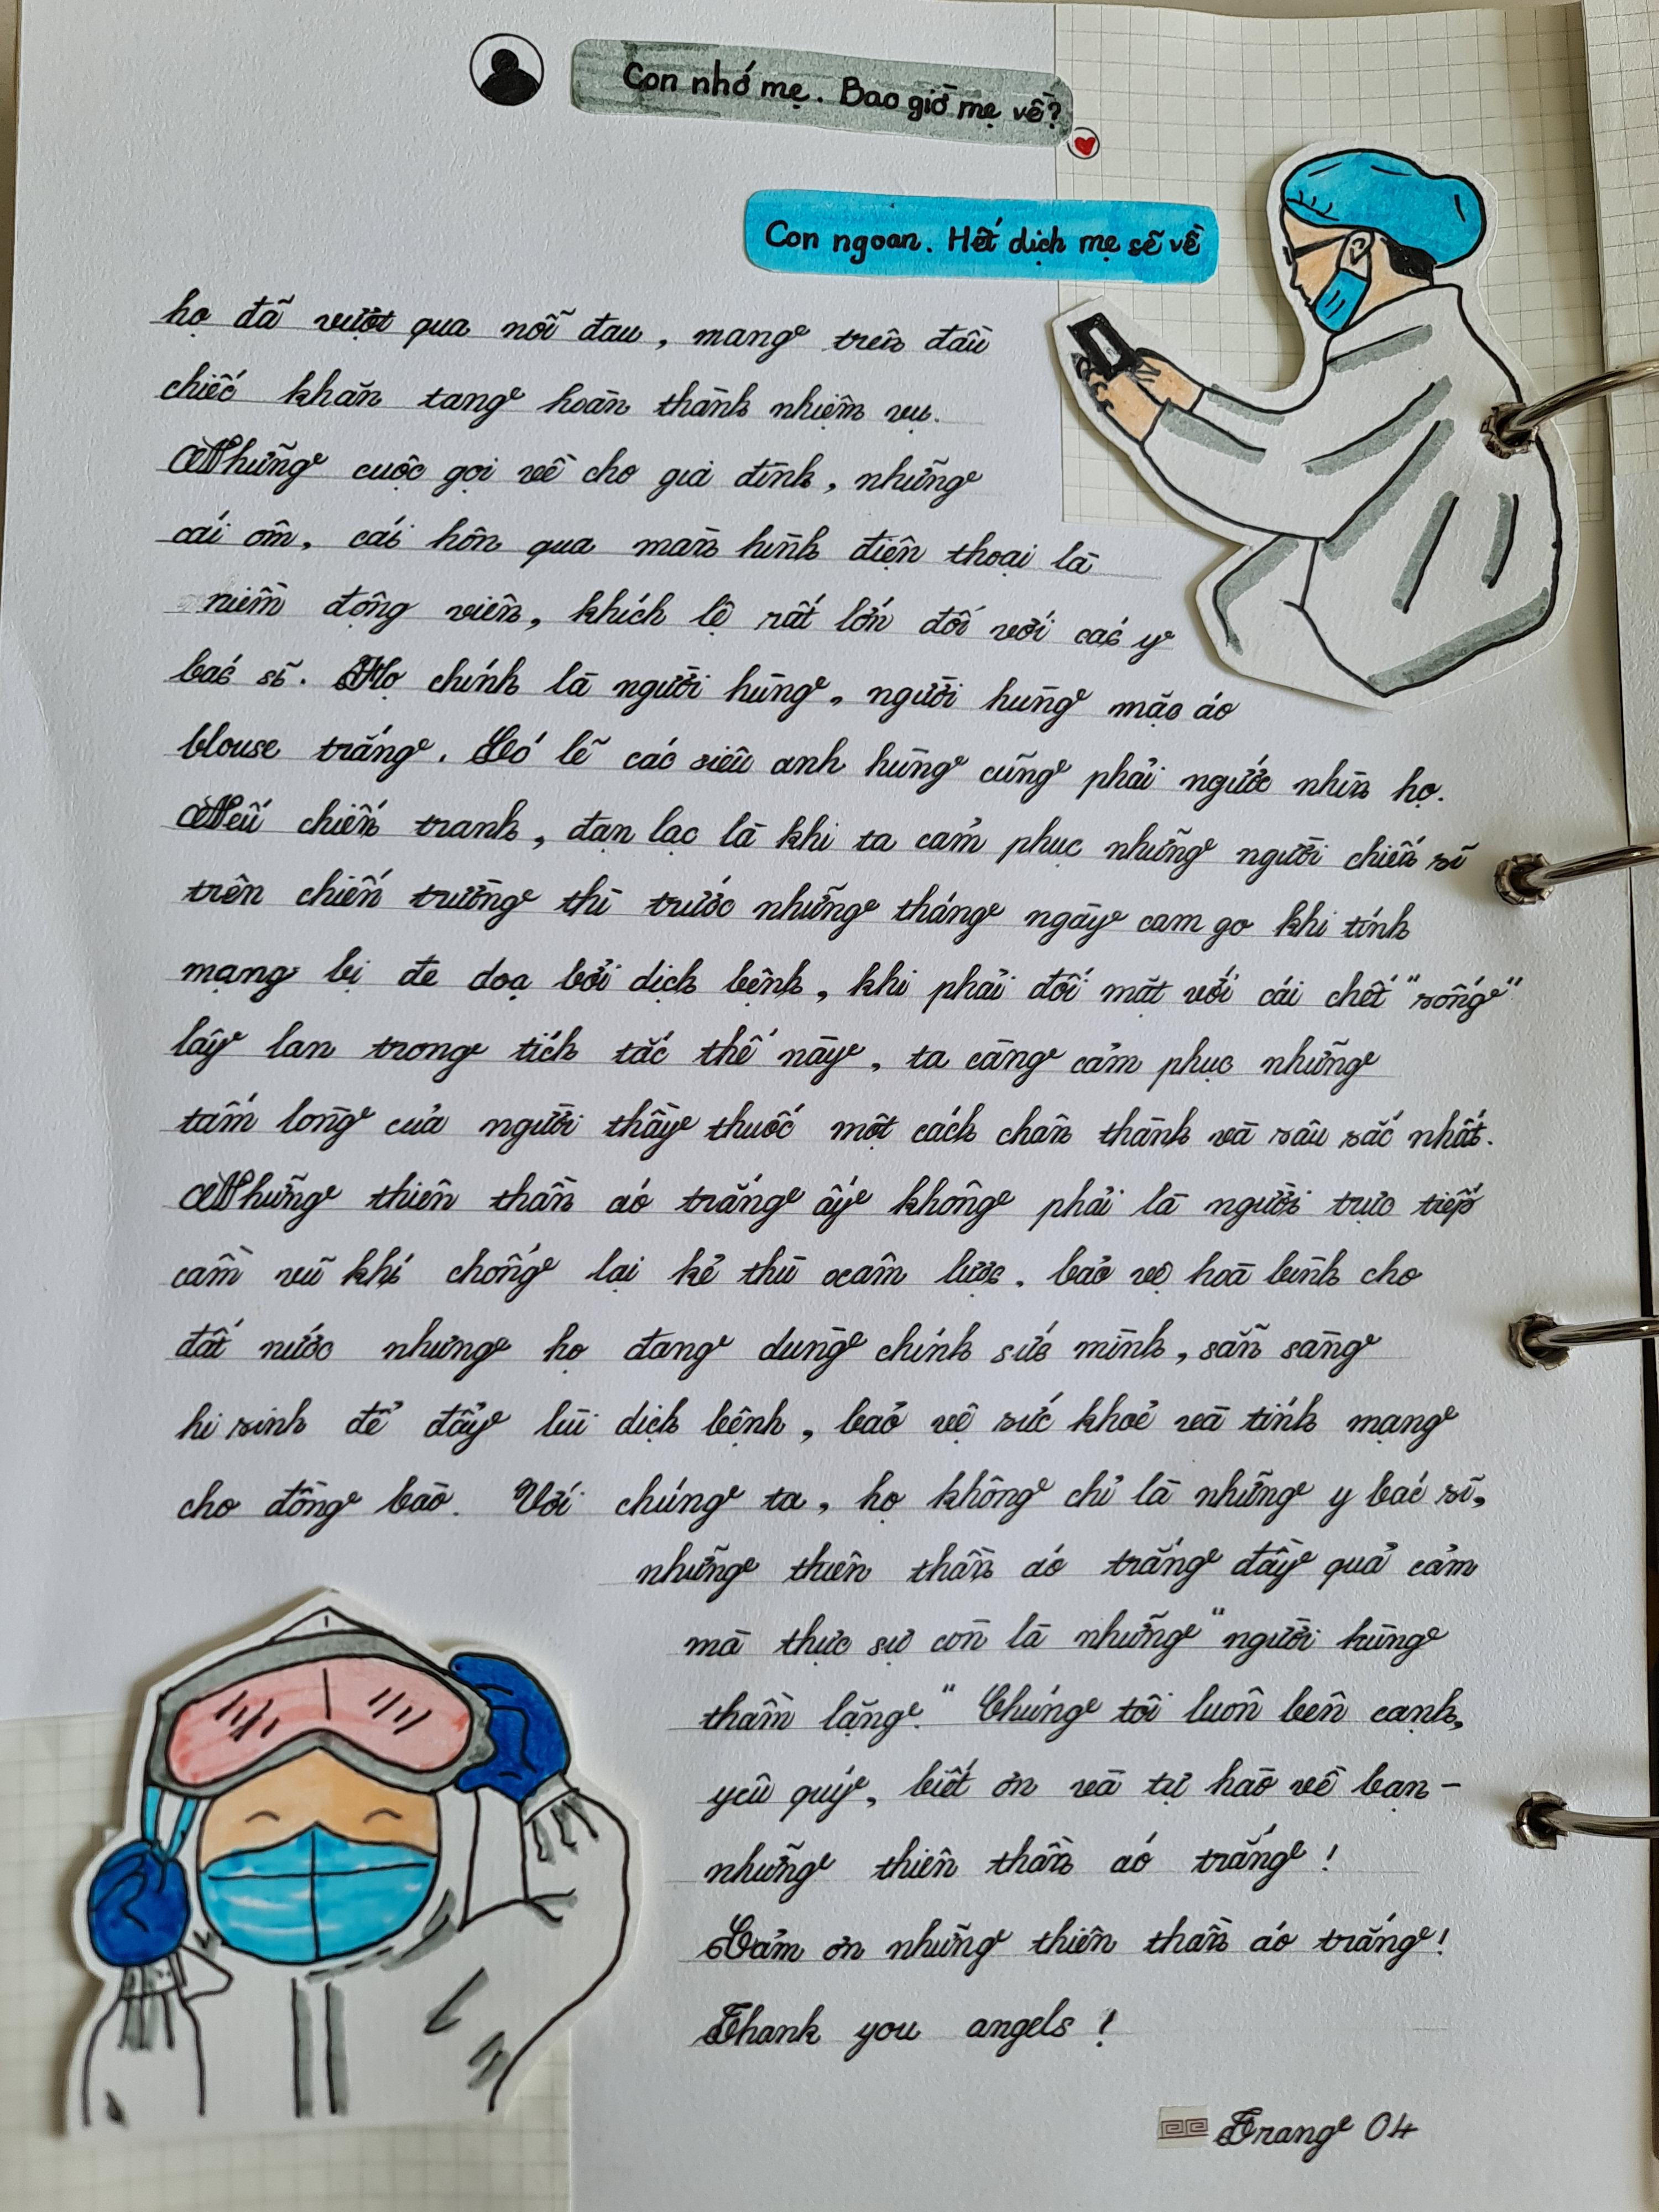 Con nhớ mẹ. Bao giờ mẹ về?
Con ngoan. Hết dịch mẹ sẽ về
họ đã vượt qua nỗi đau, mang trên đầu
chiếc khăn tang hoàn thành nhiệm vụ.
Những cuộc gọi về cho gia đình, những
cái ôm, cái hôn qua màn hình điện thoại là
niềm động viên, khích lệ rất lớn đối với các y
bác sĩ. Họ chính là người hùng, người hùng mặc áo
blouse trắng. Có lẽ các siêu anh hùng cũng phải ngước nhìn họ.
Nếu chiến tranh, đạn lạc là khi ta cảm phục những người chiến sĩ
trên chiến trường thì trước những tháng ngày cam go khi tính
mạng bị đe doạ bởi dịch bệnh, khi phải đối mặt với cái chết "sống"
lây lan trong tích tắc thế này, ta càng cảm phục những
tấm lòng của người thầy thuốc một cách chân thành và sâu sắc nhất.
Những thiên thần áo trắng ấy không phải là người trực tiếp
cầm vũ khí chống lại kẻ thù xâm lược, bảo vệ hoà bình cho
đất nước nhưng họ đang dùng chính sức mình, sẵn sàng
hi sinh để đẩy lùi dịch bệnh, bảo vệ sức khoẻ và tính mạng
cho đồng bào. Với chúng ta, họ không chỉ là những y bác sĩ,
những thiên thần áo trắng đầy quả cảm
mà thực sự còn là những "người hùng
thầm lặng." Chúng tôi luôn bên cạnh,
yêu quý, biết ơn và tự hào về bạn -
những thiên thần áo trắng!
Cảm ơn những thiên thần áo trắng!
Thank you angels!
Trang 04